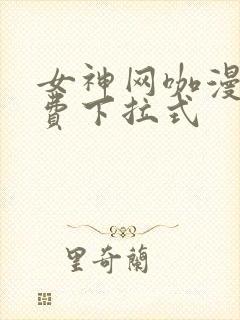 女神网咖漫
费下拉式
里奇蘭